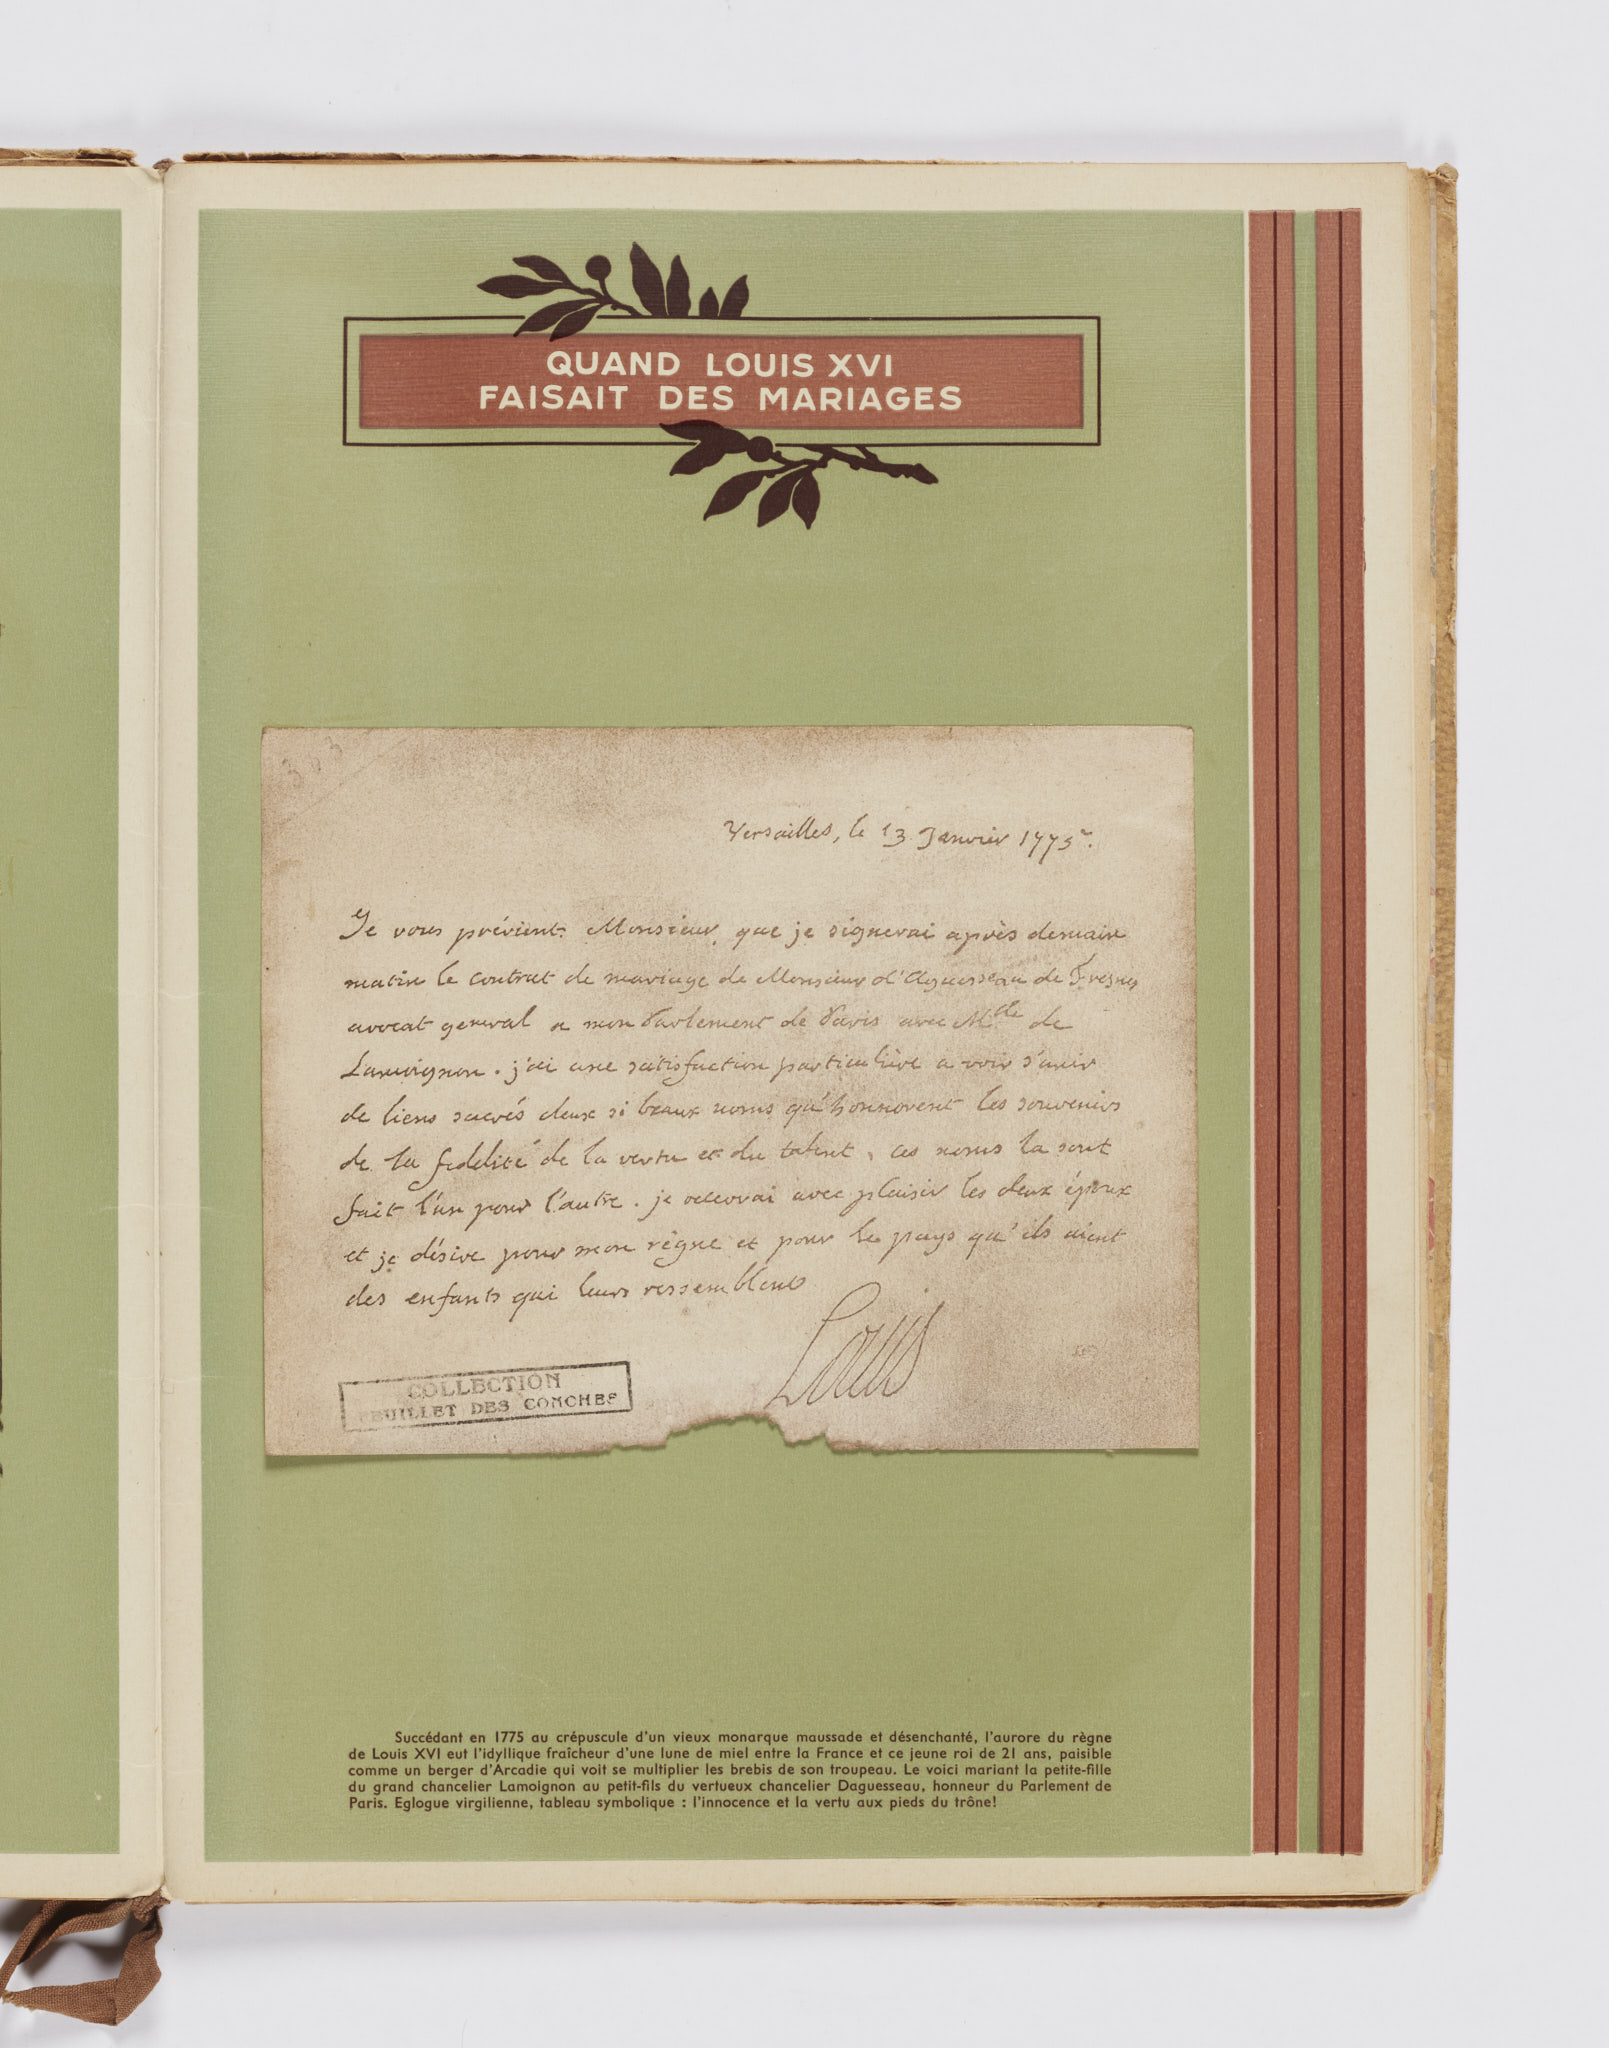 QUAND LOUIS XVI
FAISAIT DES MARIAGES
Versailles, le 13 Janvier 1775.
Je vous prévient Monsieur, que je signerai après demain
matin le contrat de mariage de Monsieur d'Aguesseau de Fresnes
avocat general a mon Parlement de Paris avec Mdlle de
Lamoignon. j'ai une satisfaction particulière a voir s'unir
de liens sacrés deux si beaux noms qu'honnorent les souvenirs
de la fidelité de la vertu et du talent, ces noms la sont
fait l'un pour l'autre. je recevrai avec plaisir les deux époux
et je désire pour mon règne et pour le pays qu'ils aient
des enfants qui leurs ressemblent
Louis
COLLECTION
FEUILLET DES CONCHES
Succédant en 1775 au crépuscule d'un vieux monarque maussade et désenchanté, l'aurore du règne
de Louis XVI eut l'idyllique fraîcheur d'une lune de miel entre la France et ce jeune roi de 21 ans, paisible
comme un berger d'Arcadie qui voit se multiplier les brebis de son troupeau. Le voici mariant la petite-fille
du grand chancelier Lamoignon au petit-fils du vertueux chancelier Daguesseau, honneur du Parlement de
Paris. Eglogue virgilienne, tableau symbolique : l'innocence et la vertu aux pieds du trône!